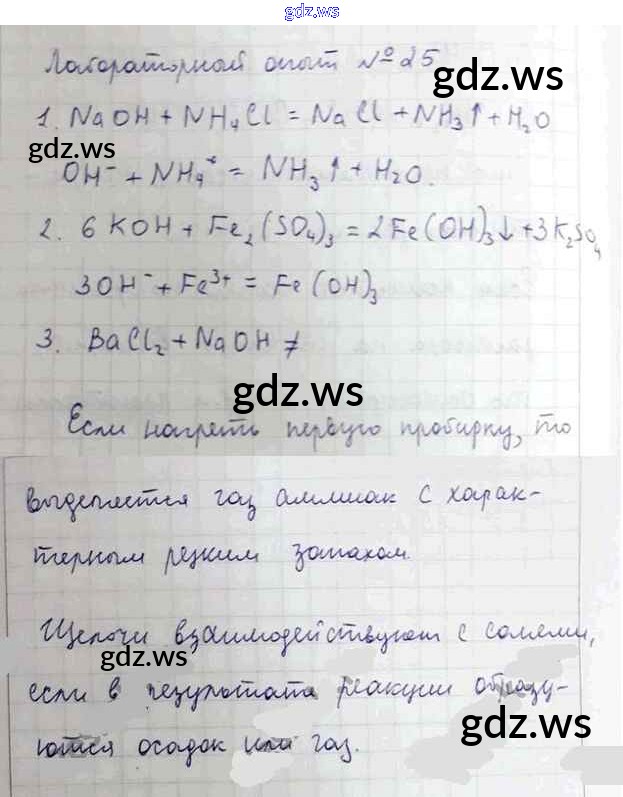 gdz.ws
Лабораторный опыт №25
gdz.ws
1. NaOH + NH₄Cl = NaCl + NH₃↑ + H₂O
gdz.ws
OH⁻ + NH₄⁺ = NH₃↑ + H₂O.
2. 6KOH + Fe₂(SO₄)₃ = 2Fe(OH)₃↓ + 3K₂SO₄
3OH⁻ + Fe³⁺ = Fe(OH)₃
3. BaCl₂ + NaOH ≠
gdz.ws
Если нагреть первую пробирку, то
выделяется газ аммиак с харак-
терным резким запахом.
Щелочи взаимодействуют с солями,
gdz.ws
если в результате реакции образу-
gdz.ws
ются осадок или газ.